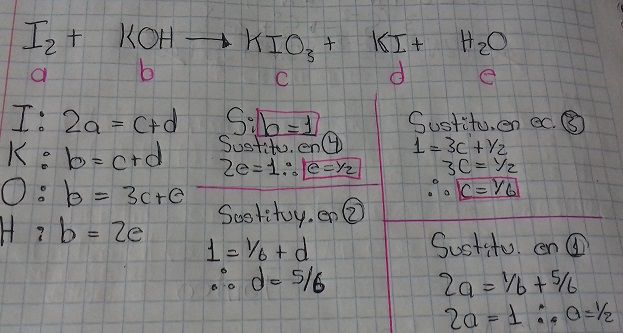 I₂ + KOH → KIO₃ + KI + H₂O
a b c d e
I: 2a = c+d
K: b = c+d
O: b = 3c+e
H: b = 2e
Si b=1
Sustitu. en ④
2e=1 ∴ e=½
Sustituy. en ②
1 = 1/6 + d
∴ d = 5/6
Sustitu. en ec. ③
1 = 3c + ½
3c = ½
∴ c = 1/6
Sustitu. en ①
2a = 1/6 + 5/6
2a = 1 ∴ a=½